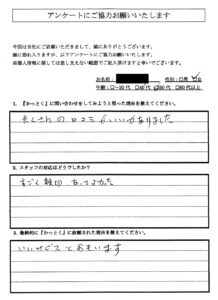 アンケートにご協力お願いいたします
今回は当社にご依頼いただきまして、誠にありがとうございます。
誠に恐れ入りますが、以下アンケートにご協力お願いいたします。
※個人情報に関しては差し支えない範囲でご記入頂けますと幸いでございます。
お名前: 性別:□男
年齢:□～30代 □40代 60代 □60代以上
1. 『かっとく』に問い合わせをしてみようと思った理由を教えてください。
たくさんの口コミがいいがありました
2. スタッフの対応はどうでしたか?
すごく親切 よかった
3. 最終的に『かっとく』に依頼された理由を教えてください。
いいサービスとおもいます